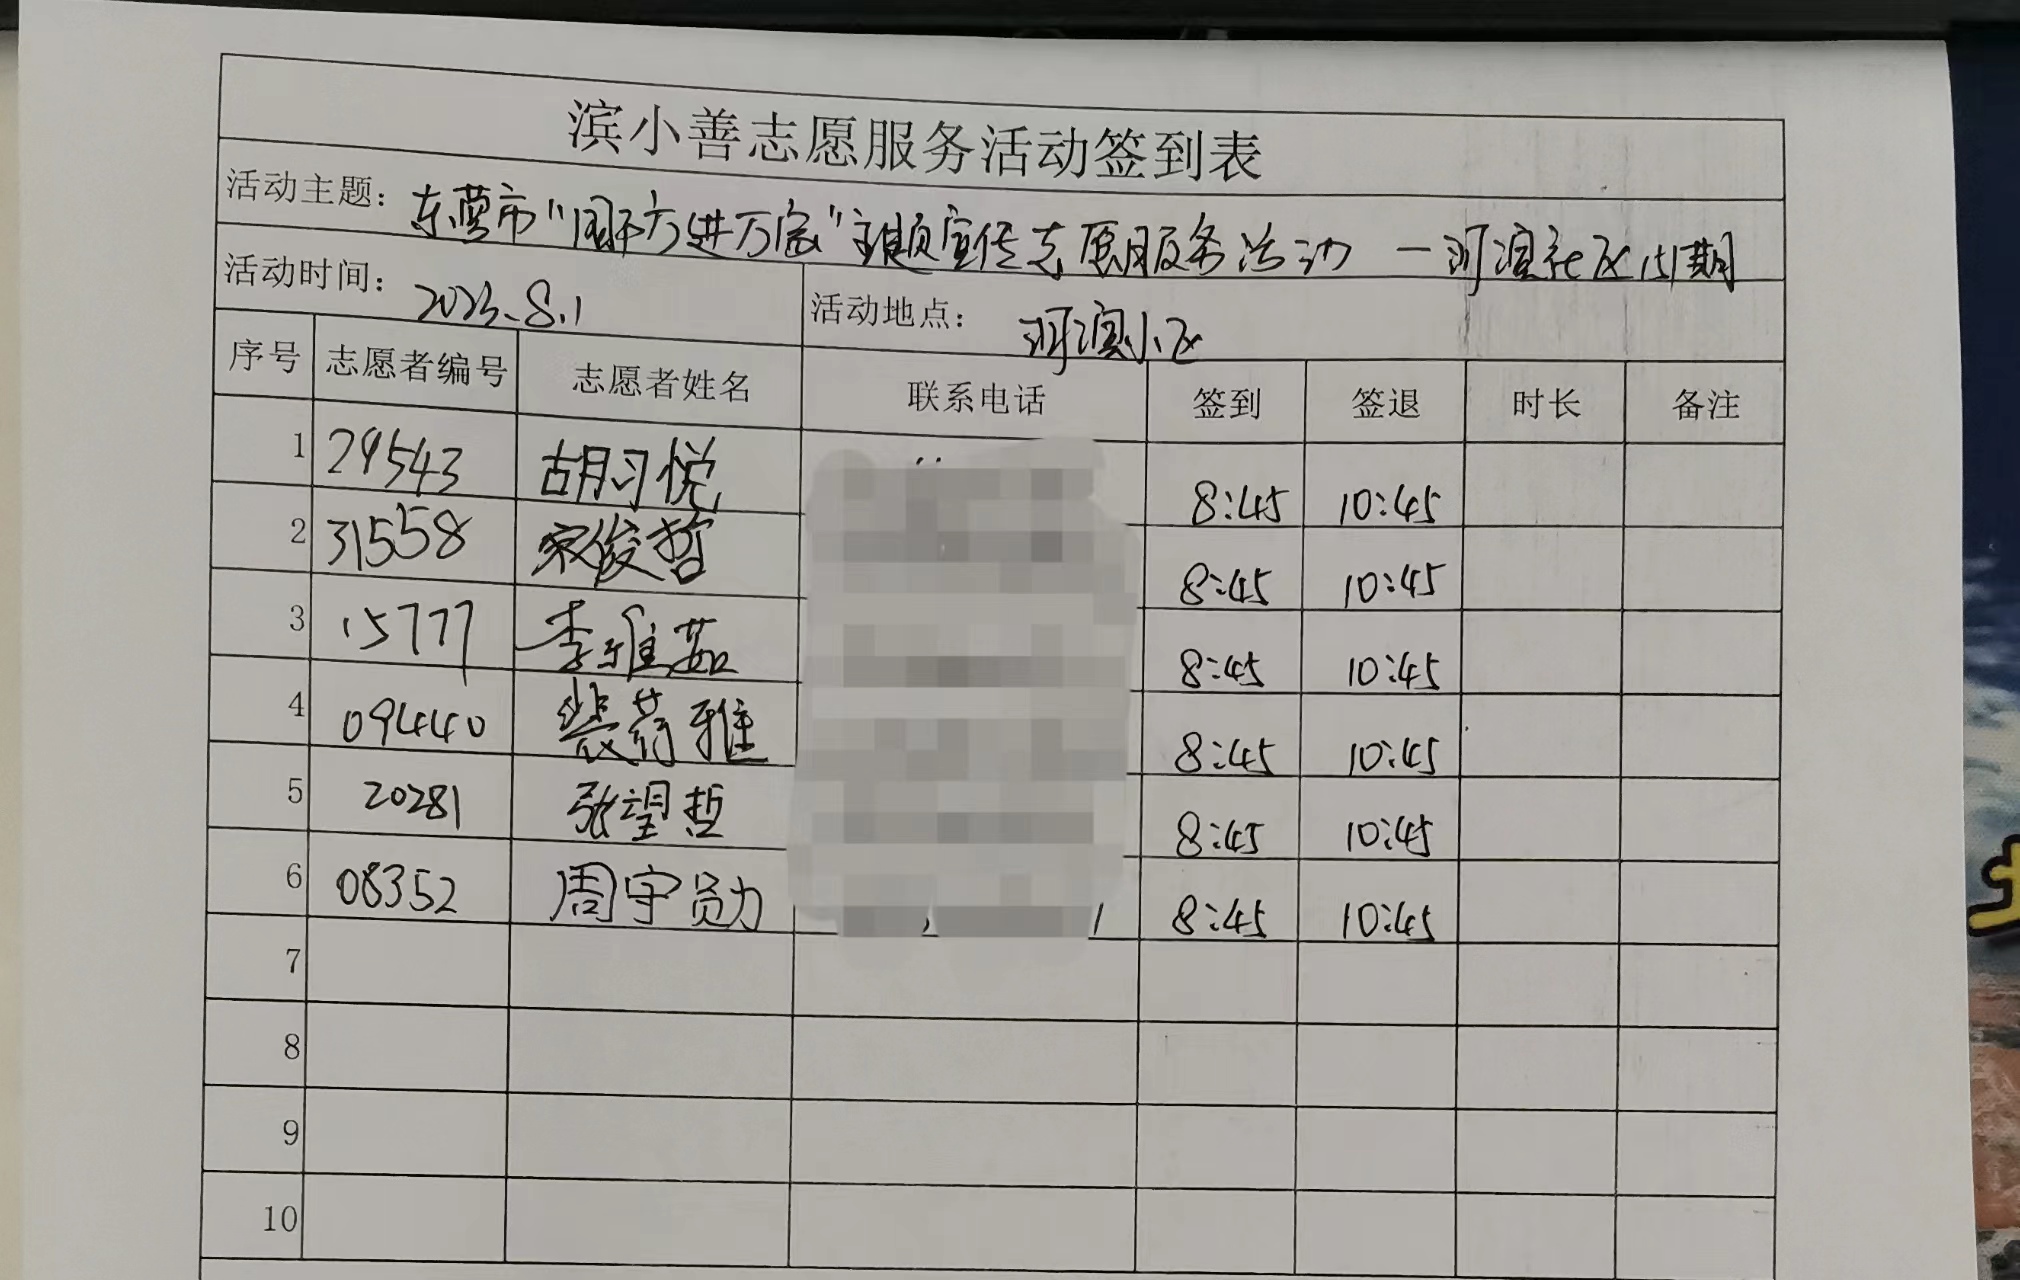 滨小善志愿服务活动签到表
活动主题：东营市“国防进万家”主题宣传志愿服务活动 一河滨社区15期
活动时间：2023.8.1 活动地点：河滨小区
序号 志愿者编号 志愿者姓名 联系电话 签到 签退 时长 备注
1 29543 胡习悦 8:45 10:45
2 31558 宋俊哲 8:45 10:45
3 15777 李雅茹 8:45 10:45
4 09440 裴荷雅 8:45 10:45
5 20281 张望哲 8:45 10:45
6 08352 周宇勋 8:45 10:45
7
8
9
10